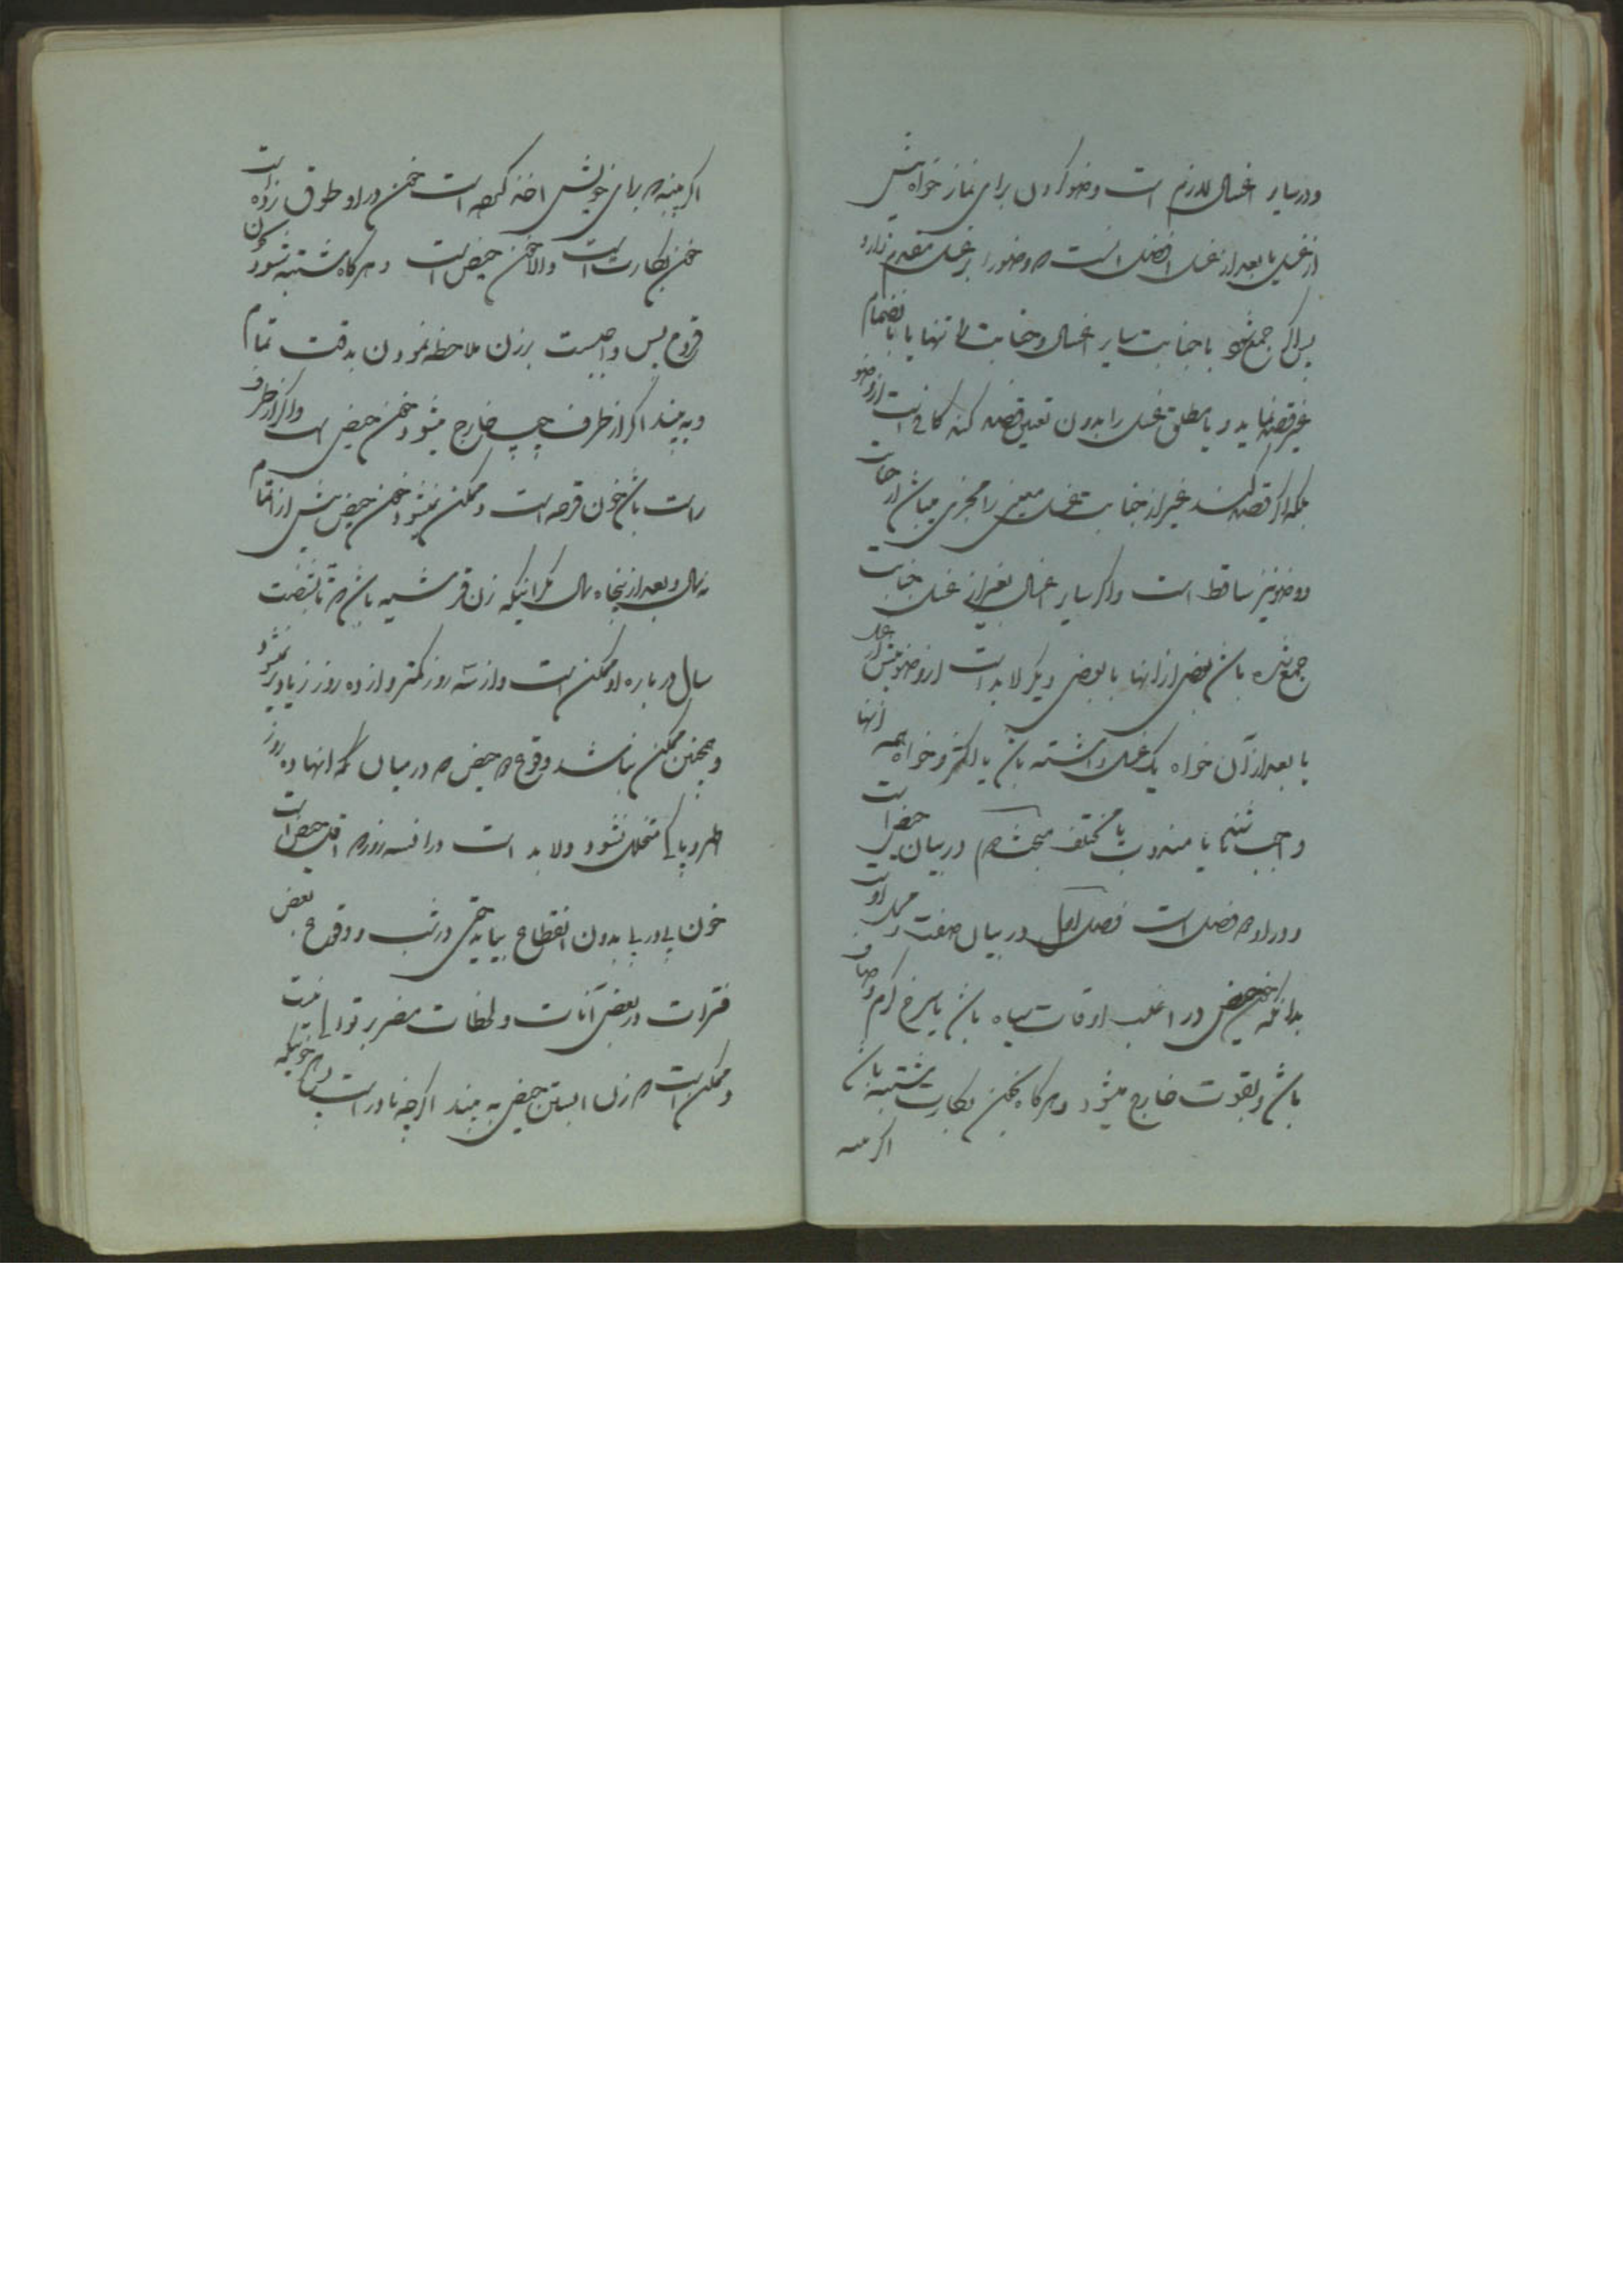 و در سایر اغسال لازم است وضو کردن برای نماز خواه پیش
از غسل یا بعد از غسل افضل انست که وضو را بر غسل مقدم دارد
پس اگر جمع شود با جنابت سایر اغسال و جنابت را تنها یا بانضمام
غیر قصد نماید و یا مطلق غسل را بدون تعیین قصد کند کافی است از وضو
بلکه اگر قصد کند غیر از جنابت غسل معینی را مجزی میباشد از جنابت
و وضو نیز ساقط است و اگر سایر اغسال بغیر از غسل جنابت
جمع شده باشد بعضی از انها با بعضی دیگر لابد است از وضو پیش از غسل
یا بعد از آن خواه یک غسل داشته باشد یا بیشتر و خواه همه انها
واجب باشند یا مندوب یا مختلف مبحث دوم در بیان حیض است
و در او دو فصل است فصل اول در بیان صفت و محل اوست
بدانکه خون حیض در اغلب اوقات سیاه باشد یا سرخ گرم و صاف
باشد و بقوت خارج میشود و هرگاه بخون بکارت مشتبه باشد
اگر پنبه
اگر پنبه که برای خویش اخذ کرده است خون در او طوق زده است
خون بکارت است والا خون حیض است و هرگاه مشتبه شود بخون
قروح پس واجبست بر زن ملاحظه نمودن بدقت تمام
و به بیند اگر از طرف چپ خارج میشود خون حیض است و اگر از طرف
راست باشد خون قرحه است و ممکن نمیشود خون حیض پیش از اتمام
نه سال و بعد از پنجاه سال مگر اینکه زن قرشیه باشد که تا بشصت
سال در باره او ممکن است و از سه روز کمتر و از ده روز زیادتر نمیشود
و همچنین ممکن نباشد وقوع دو حیض که در میان انها ده روز
طهر و پاکی متخلل نشود و لابد است در این سه روز که اقل حیض است
خون پی در پی بدون انقطاع بیاید حتی در شب و وقوع بعض
فترات در بعض آنات و لحظات مضر بر توالی نیست
و ممکن است که زن ابستن حیض به بیند اگرچه نادر است خونیکه